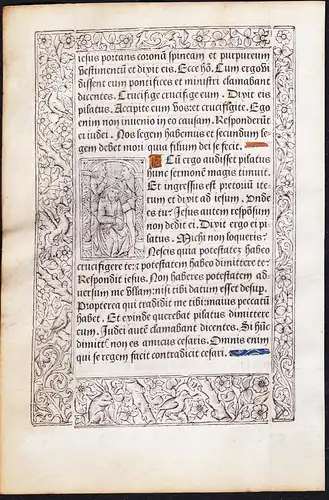 iesus portans coronã spineam et purpureum
vestimentũ et dixit eis. Ecce hõ. Cum ergo vi
dissent eum pontifices et ministri clamabant
dicentes. Crucifige crucifige eum. Dixit eis
pilatus. Accipite eum vos: et crucifigite. Ego
enim non invenio in eo causam. Responderũt
ei iudei. Nos legem habemus et secundum le
gem debet mori quia filium dei se fecit.
CŨ ergo audisset pilatus
hunc sermonẽ magis timuit.
Et ingressus est pretoriũ ite
rum et dixit ad iesum. Unde
es tu: Jesus autem respõsum
non dedit ei. Dixit ergo ei pi
latus. Michi non loqueris:
Nescis quia potestatẽ habeo
crucifigere te: et potestatem habeo dimittere te:
Respondit iesus. Non haberes potestatem ad
versum me ullam: nisi tibi datum esset desup.
Propterea qui tradidit me tibi: maius peccatũ
habet. Et exinde querebat pilatus dimittere
eum. Judei autẽ clamabant dicentes. Si hũc
dimittis non es amicus cesaris. Omnis enim
qui se regem facit contradicit cesari.